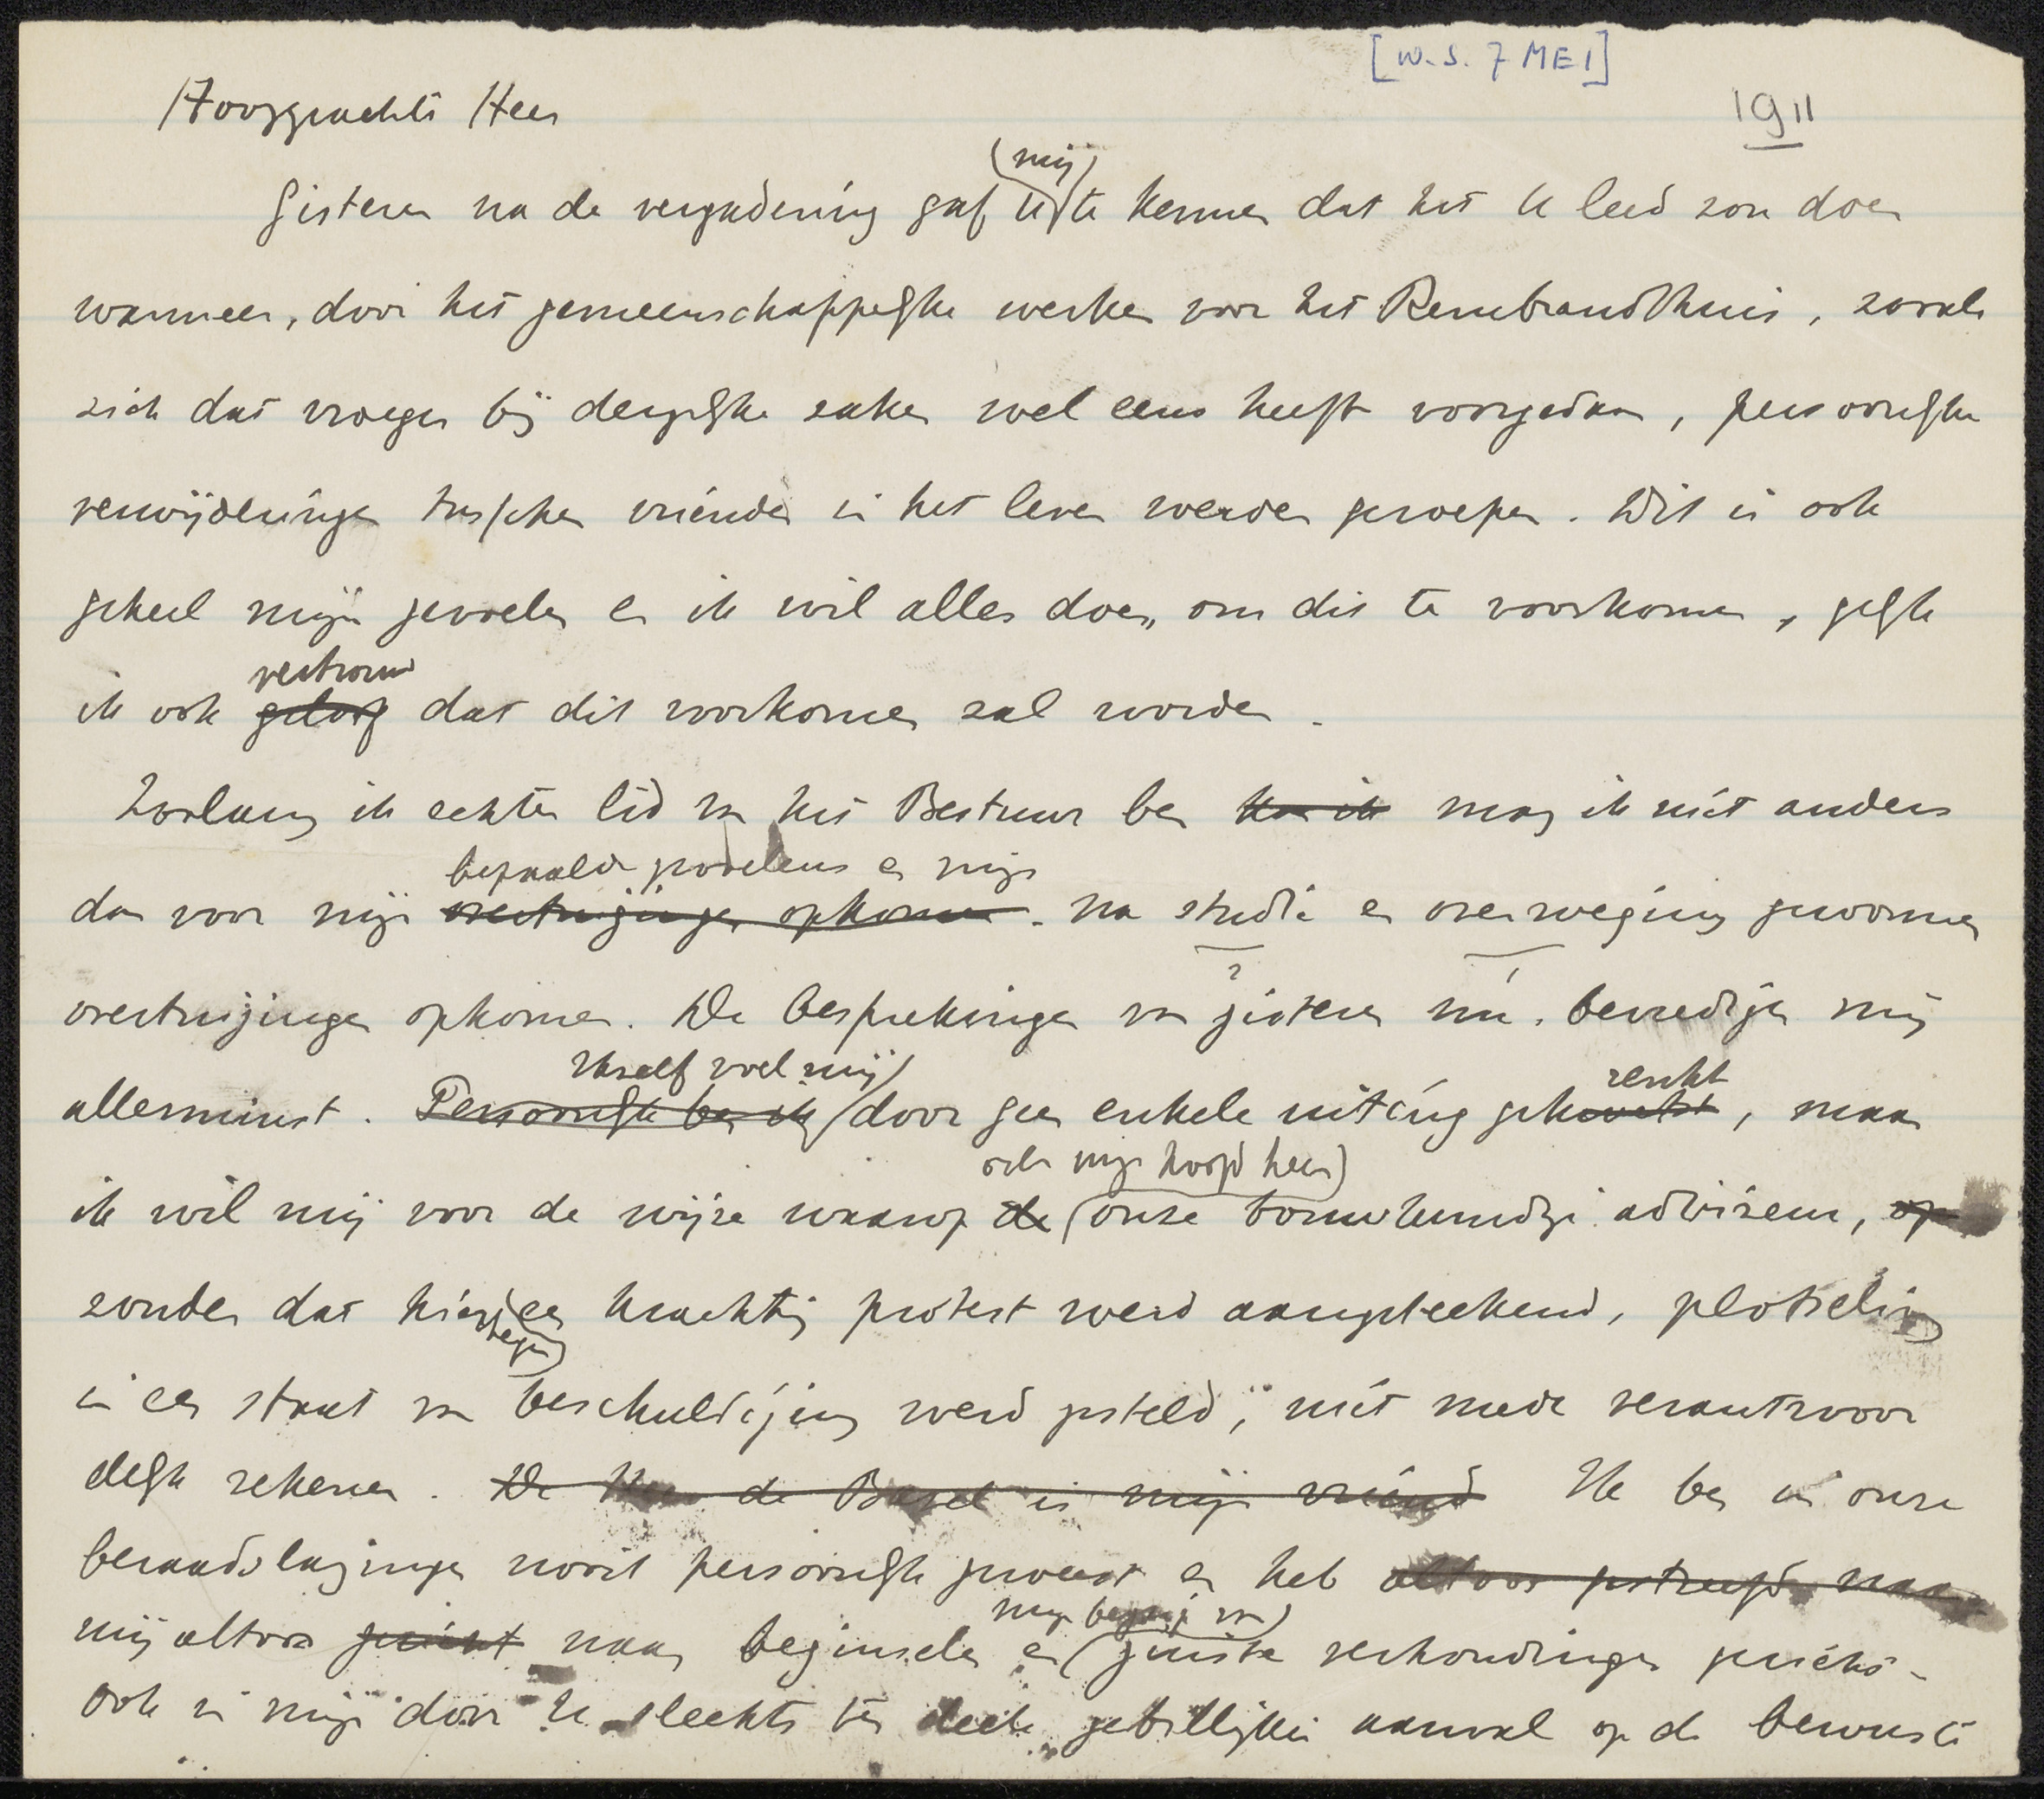 [W.S. 7 MEI]
1911
Hooggeachte Heer
Gisteren na de vergadering gaf U (mij) te kennen dat het U leed zou doen
wanneer, door het gemeenschappelijke werken voor het Rembrandthuis, zooals
zich dat vroeger bij dergelijke zaken wel eens heeft voorgedaan, persoonlijke
verwijderingen tusschen vrienden in het leven werden geroepen. Dit is ook
geheel mijn gevoelen en ik wil alles doen, om dit te voorkomen, gelijk
vertrouw
ik ook geloof dat dit voorkomen zal worden.
Zoolang ik echter lid van het Bestuur ben kan ik mag ik niet anders
bepaalde gevoelens en mijn
dan voor mijn overtuigingen opkomen. na studie en overweging gewonnen
overtuigingen opkomen. De besprekingen van gisteren nu bevredigen mij
Ikzelf voel mij
allerminst. Persoonlijk ben ik door geen enkele uiting gekwetst, maar
over mijn hoofd heen
ik wil mij voor de wijze waarop de onze bouwkundige adviseur, op
zonder dat hier een krachtig protest werd aangeteekend, plotseling
tegen
in een staat van beschuldiging werd gesteld, niet mede verantwoor
delijk rekenen. De Heer de Bazel is mijn vriend Ik ben in onze
beraadslagingen nooit persoonlijk geweest en heb altoos gestreefd naar
mijn begrip van
mij altoos gericht naar beginselen en juiste verhoudingen gericht.
Ook in mijn door U slechts ten deele gebillijkte aanval op de bewuste